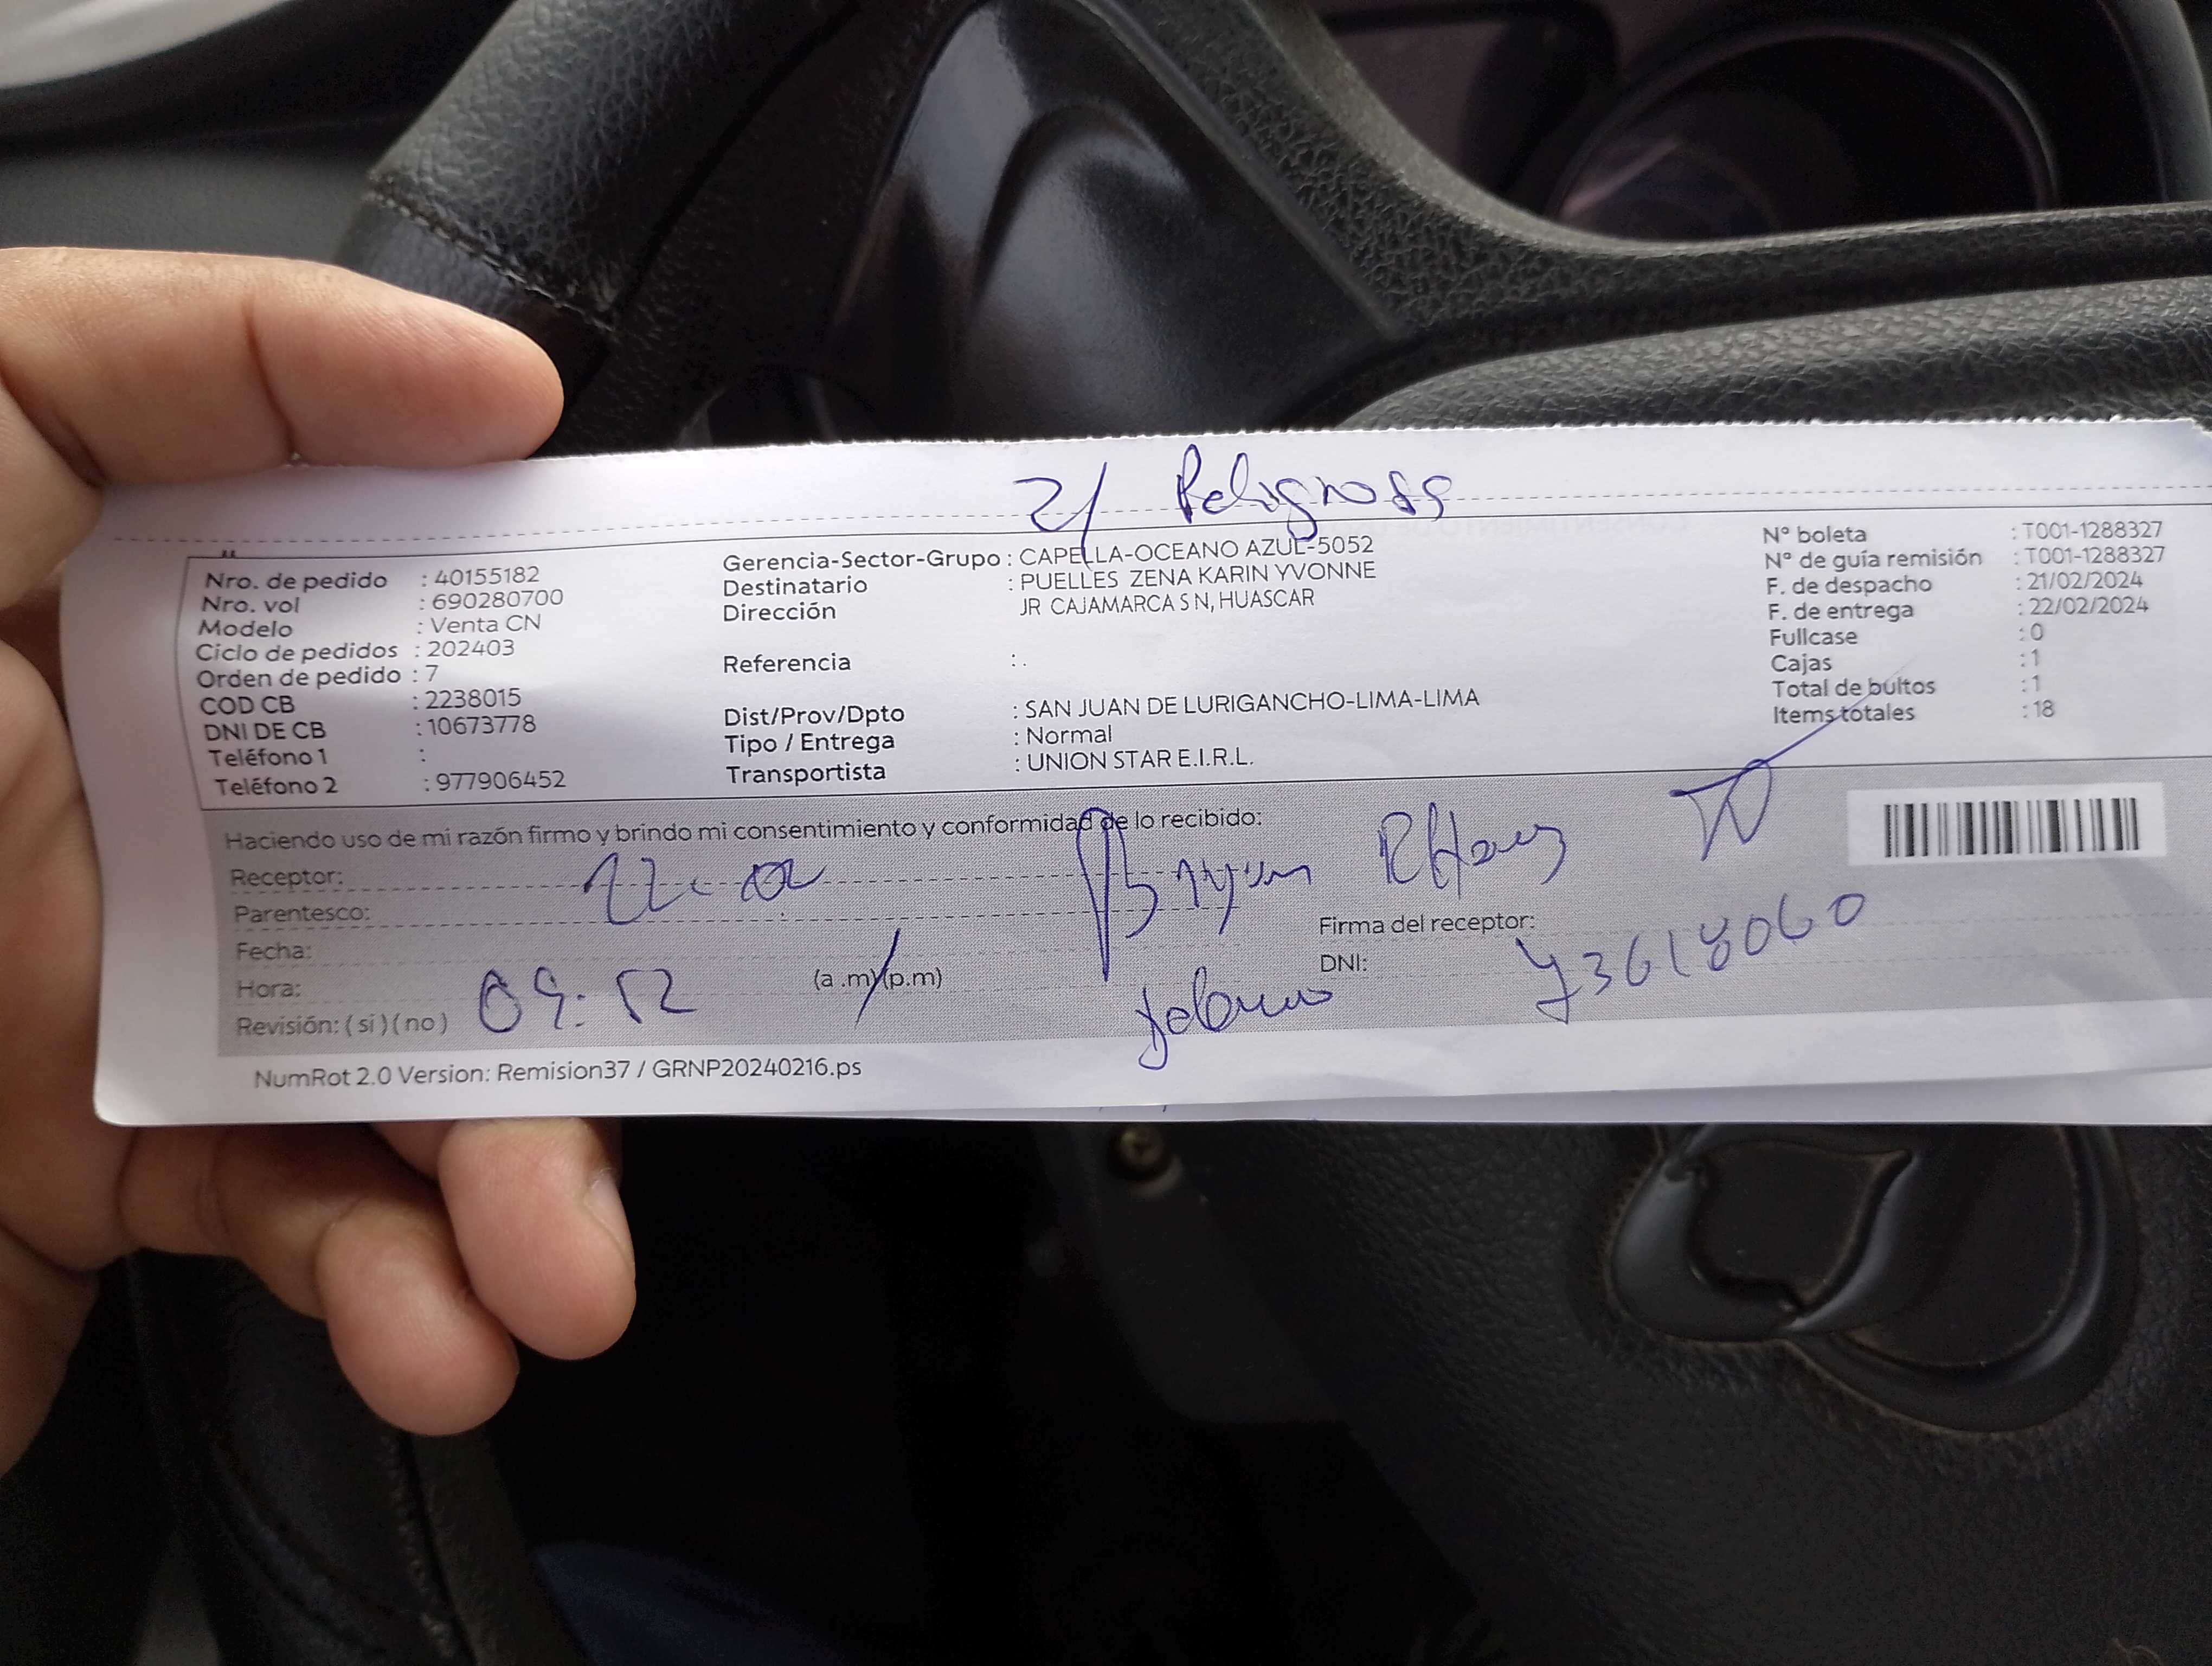 Z/ Peligross
Nro. de pedido : 40155182
Nro. vol : 690280700
Modelo : Venta CN
Ciclo de pedidos : 202403
Orden de pedido : 7
COD CB : 2238015
DNI DE CB : 10673778
Teléfono 1 :
Teléfono 2 : 977906452
Gerencia-Sector-Grupo : CAPELLA-OCEANO AZUL-5052
Destinatario : PUELLES ZENA KARIN YVONNE
Dirección JR CAJAMARCA S N, HUASCAR
Referencia : .
Dist/Prov/Dpto : SAN JUAN DE LURIGANCHO-LIMA-LIMA
Tipo / Entrega : Normal
Transportista : UNION STAR E.I.R.L.
N° boleta : T001-1288327
N° de guía remisión : T001-1288327
F. de despacho : 21/02/2024
F. de entrega : 22/02/2024
Fullcase : 0
Cajas : 1
Total de bultos : 1
Items totales : 18
Haciendo uso de mi razón firmo y brindo mi consentimiento y conformidad de lo recibido:
Receptor:
Parentesco:
Fecha:
Hora: 09:52 (a.m)(p.m)
Revisión: ( si ) ( no )
Firma del receptor:
DNI: 73618060
NumRot 2.0 Version: Remision37 / GRNP20240216.ps